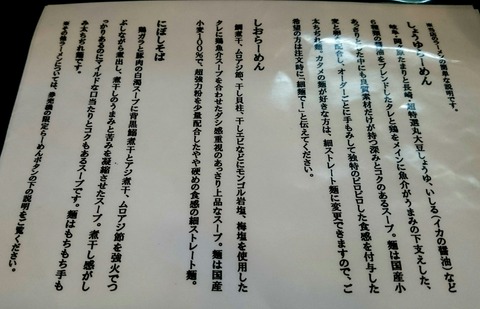 しょうゆらーめん
岐阜・岡﨑たまりと長崎・超特選丸大豆しょうゆ、いしる(イカの醤油)など
6種類の醤油をブレンドしたタレと鶏をメインに魚介がうまみの下支えした、
あっさりとした中にも良質素材だけが持つ深みとコクのあるスープ。麺は国産小
麦と卵を配合し、オーダーごとに手もみして独特のピロピロした食感を付与した
太ちぢれ麺。カタメの麺が好きな方は、細ストレート麺に変更できますので、ご
希望の方は注文時に「細麺で!」と伝えてください。
しおらーめん
鯛煮干、ムロアジ節、干し貝柱、干しエビなどにモンゴル岩塩、梅塩を使用した
タレに鶏魚介スープを合わせたタンカ感重視のあっさり上品なスープ。麺は国産
小麦100%で、超強力粉を少量配合したやや硬めの食感の細ストレート麺。
にぼしそば
鶏ガラと豚肉の白濁スープに背黒鰯煮干とアジ煮干、ムロアジ節を強火でつ
ぶしながら炊き出し、煮干しのうまみと苦みを凝縮させたスープ。煮干し感がし
っかりあるのにマイルドな口当たりとコクもあるスープです。麺はもちもち手も
み太ちぢれ麺です。
※その他ラーメンについては、券売機の限定らーめんボタンの下の説明をご覧ください。